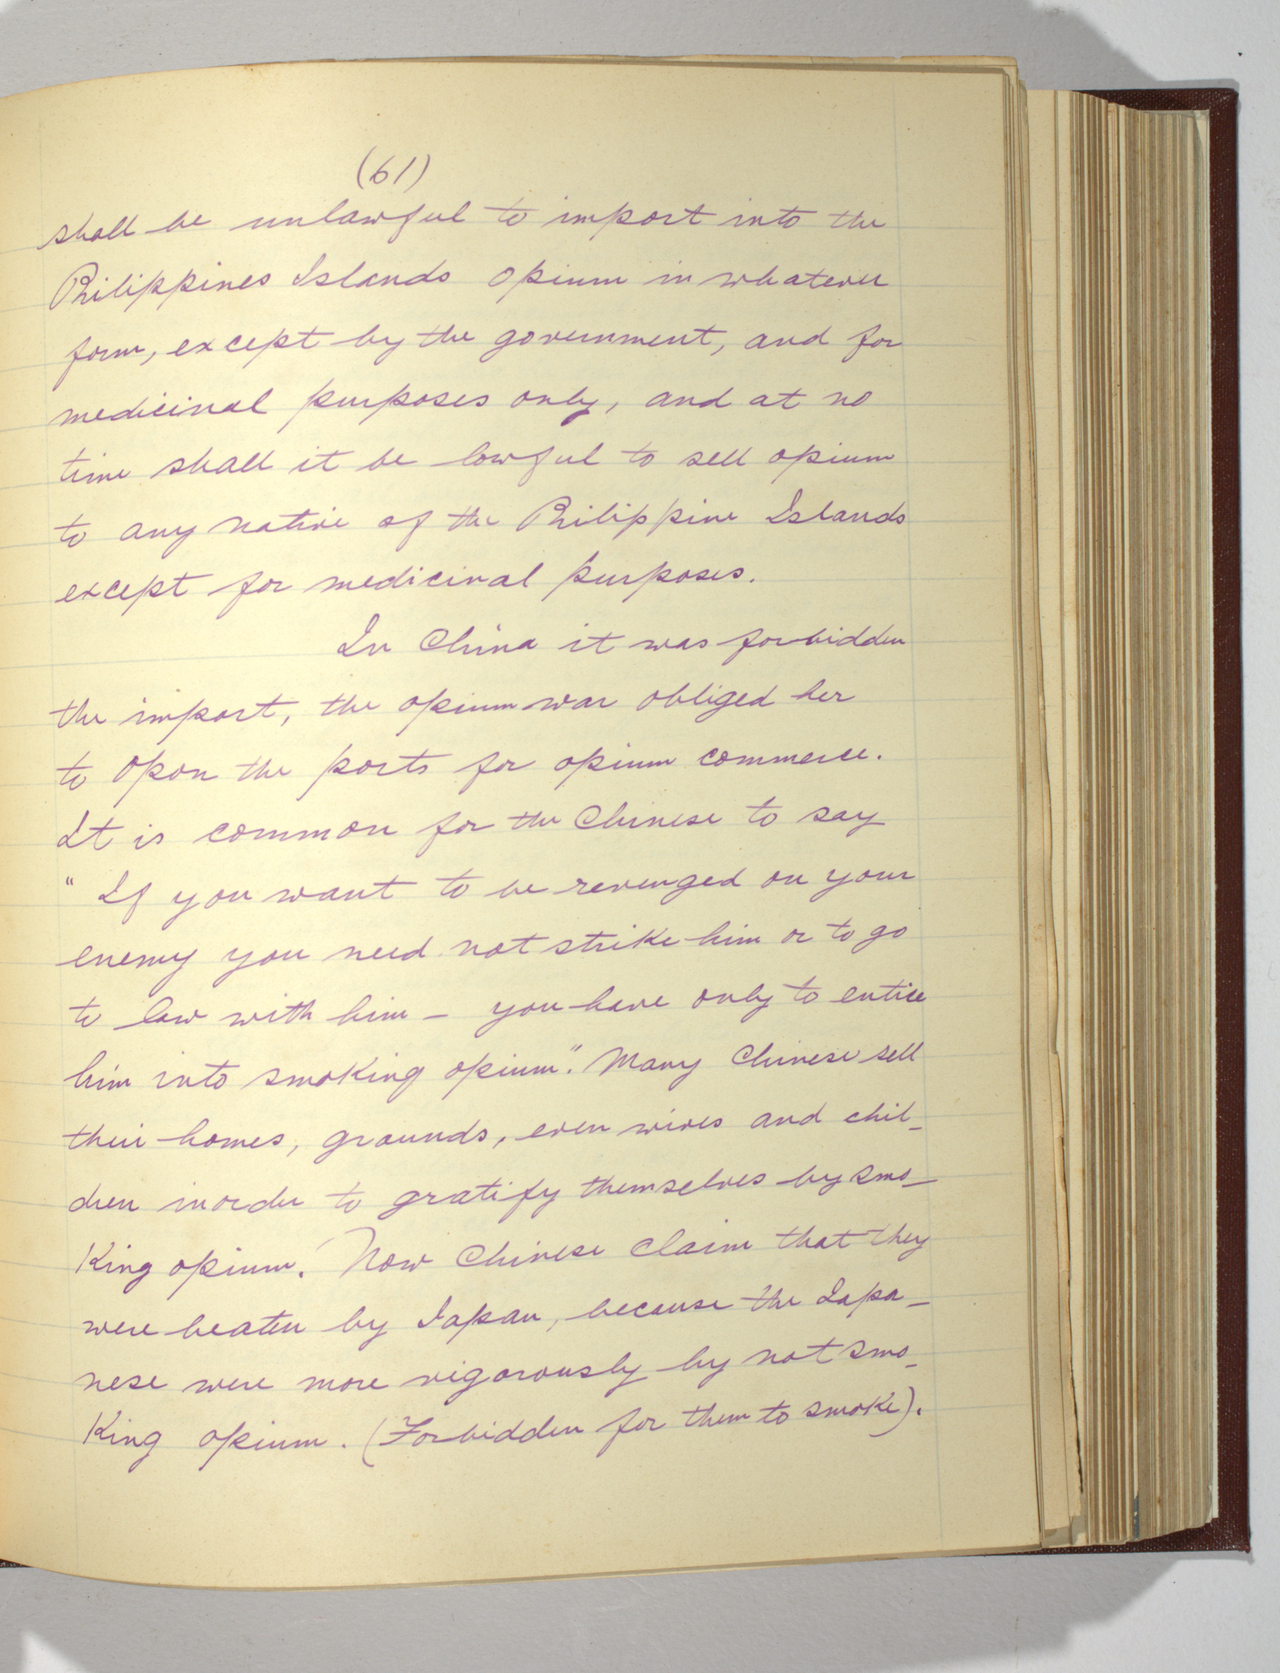 (61)
shall be unlawful to import into the
Philippines Islands opium in whatever
form, except by the government, and for
medicinal purposes only, and at no
time shall it be lawful to sell opium
to any native of the Philippine Islands
except for medicinal purposes.
In China it was forbidden
the import, the opium war obliged her
to opon the ports for opium commerce.
It is common for the Chinese to say
"If you want to be revenged on your
enemy you need not strike him or to go
to law with him – you have only to entice
him into smoking opium". Many Chinese sell
their homes, grounds, even wives and chil-
dren inorder to gratify themselves by smo-
king opium. Now Chinese claim that they
were beaten by Japan, because the Japa-
nese were more vigorously by not smo-
king opium. (Forbidden for them to smoke).